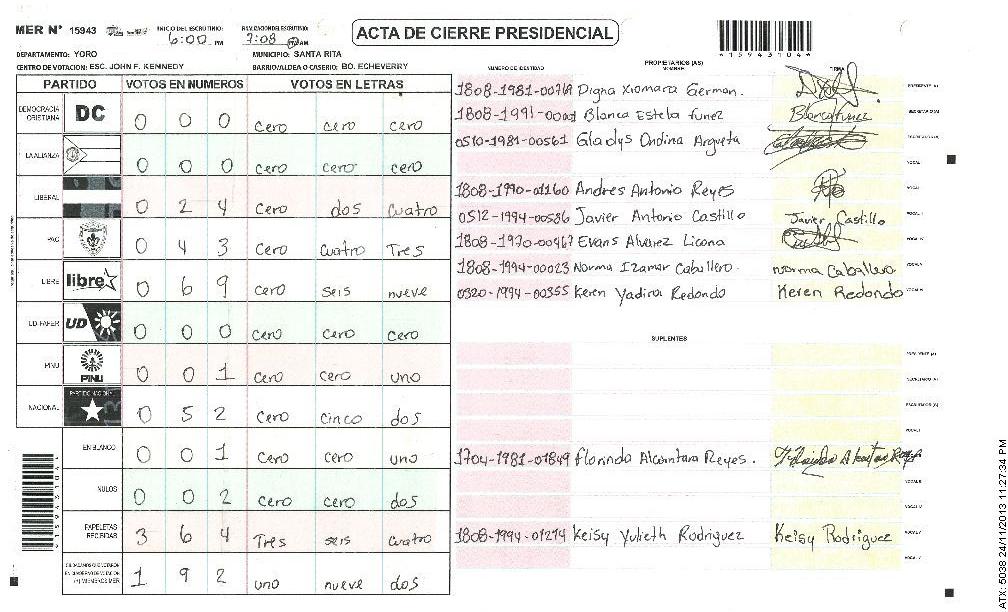 MER N° 15943 INICIO DEL ESCRUTINIO: 6:00 PM FINALIZACION DEL ESCRUTINIO: 7:08 PM AM
ACTA DE CIERRE PRESIDENCIAL
4159431044
DEPARTAMENTO: YORO MUNICIPIO: SANTA RITA
CENTRO DE VOTACION: ESC. JOHN F. KENNEDY BARRIO/ALDEA O CASERIO: BO. ECHEVERRY
PARTIDO VOTOS EN NUMEROS VOTOS EN LETRAS
DEMOCRACIA CRISTIANA DC 0 0 0 cero cero cero
LA ALIANZA 0 0 0 cero cero cero
LIBERAL 0 2 4 cero dos cuatro
PAC 0 4 3 cero cuatro Tres
LIBRE libre 0 6 9 cero seis nueve
UD-FAPER UD 0 0 0 cero cero cero
PINU PINU 0 0 1 cero cero uno
NACIONAL PARTIDO NACIONAL 0 5 2 cero cinco dos
EN BLANCO 0 0 1 cero cero uno
NULOS 0 0 2 cero cero dos
PAPELETAS RECIBIDAS 3 6 4 Tres seis cuatro
CIUDADANOS QUE VOTARON EN CUADERNO DE VOTACION (+) MIEMBROS MER 1 9 2 uno nueve dos
PROPIETARIOS (AS)
NUMERO DE IDENTIDAD NOMBRE FIRMA
Digna Xiomara German. PRESIDENTE (A)
Blanca Estela Funez Blanca Funez SECRETARIO (A)
0510-1981-00561 Gladys Ondina Argueta ESCRUTADOR (A)
VOCAL
1808-1990-01160 Andres Antonio Reyes VOCAL
0512-1994-00586 Javier Antonio Castillo Javier Castillo VOCAL
1808-1970-00467 Evans Alvarez Licona VOCAL
1808-1994-00023 Norma Izamar Caballero. Norma Caballero VOCAL
0320-1994-00355 Keren Yadira Redondo Keren Redondo VOCAL
SUPLENTES
PRESIDENTE (A)
SECRETARIO (A)
ESCRUTADOR (A)
VOCAL
1704-1981-01849 Florindo Alcantara Reyes. VOCAL
VOCAL
VOCAL
1808-1994-01274 Keisy Yulieth Rodriguez Keisy Rodriguez VOCAL
VOCAL
4159431044
ATX: 5038 24/11/2013 11:27:34 PM